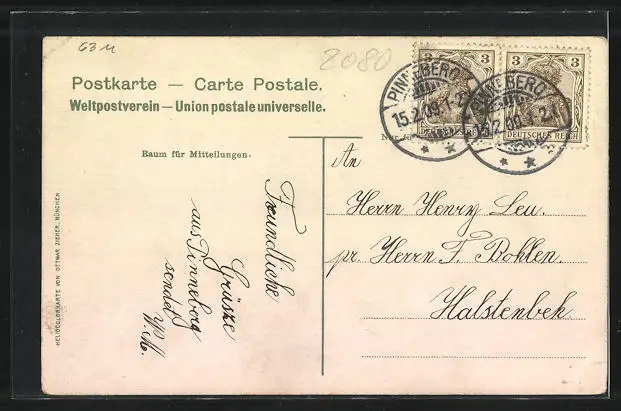 63 M
2080
Postkarte — Carte Postale.
Weltpostverein — Union postale universelle.
Raum für Mitteilungen.
3 3
3 3
DEUTSCHES REICH
DEUTSCHES REICH
PINNEBERG
15.2.09.1-2N
PINNEBERG
15.2.09.1-2N
An
Herrn Henry Leu.
pr. Herrn T. Bohlen.
Halstenbek
Freundliche
Grüsze
aus Pinneberg
sendet
W. M.
HELIOCOLORKARTE VON OTTMAR ZIEHER, MÜNCHEN